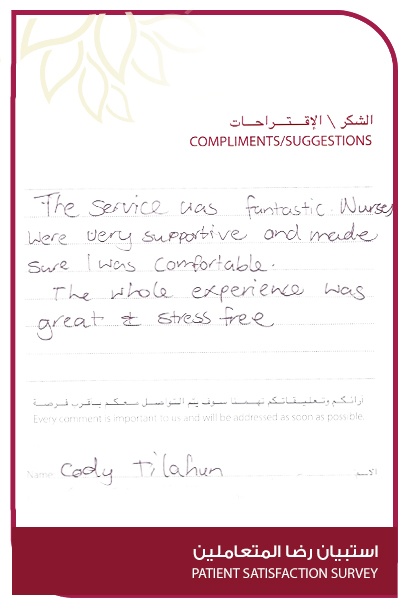 الشكر \ الإقتراحات
COMPLIMENTS/SUGGESTIONS
The service was fantastic. Nurses
were very supportive and made
sure I was comfortable.
The whole experience was
great & stress free
ارائكم وتعليقاتكم تهمنا سوف يتم التواصل معكم بأقرب فرصة
Every comment is important to us and will be addressed as soon as possible.
Name Cody Tilahun الاسم
استبيان رضا المتعاملين
PATIENT SATISFACTION SURVEY